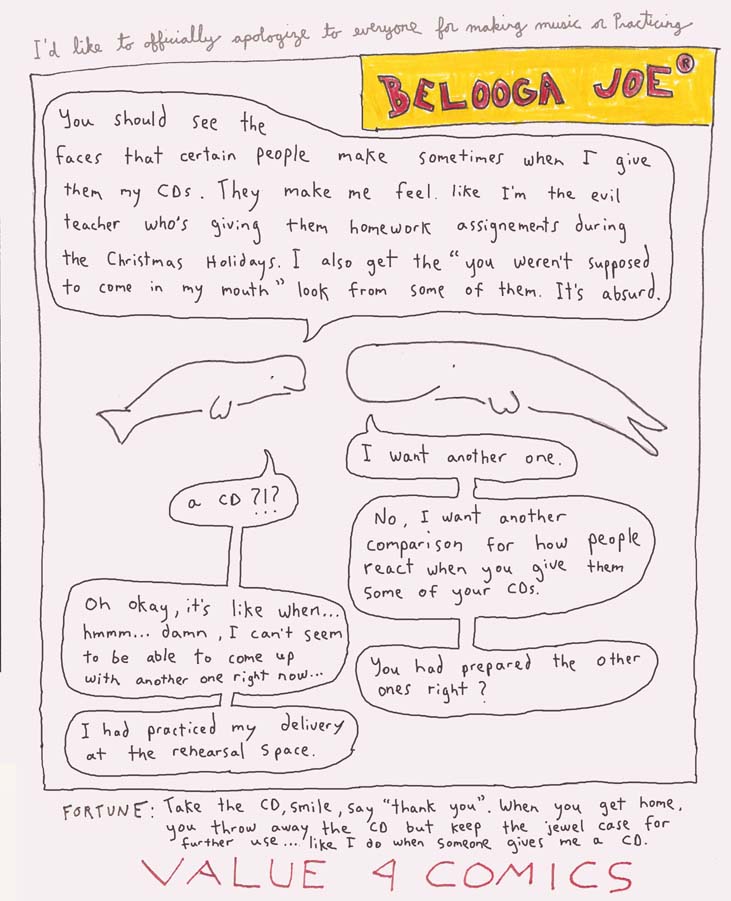 I'd like to officially apologize to everyone for making music or Practicing
BELOOGA JOE®
You should see the
faces that certain people make sometimes when I give
them my CDs. They make me feel. like I'm the evil
teacher who's giving them homework assignements during
the Christmas Holidays. I also get the "you weren't supposed
to come in my mouth" look from some of them. It's absurd.
I want another one.
a CD ?!?
No, I want another
comparison for how people
react when you give them
some of your CDs.
Oh okay, it's like when...
hmmm... damn, I can't seem
to be able to come up
with another one right now...
You had prepared the other
ones right?
I had practiced my delivery
at the rehearsal space.
FORTUNE: Take the CD, smile, say "thank you". When you get home,
you throw away the CD but keep the jewel case for
further use... like I do when someone gives me a CD.
VALUE 4 COMICS